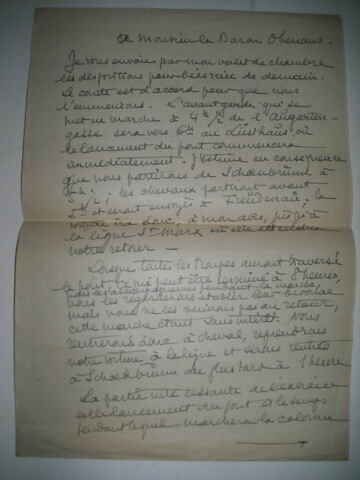 A Monsieur le Baron Obenaus.
Je vous envoie par mon valet de chambre
les dispositions pour l'exercice de demain.
Le comte est d'accord pour que nous
l'emmenions. L'avantgarde qui se
met en marche à 4h 1/2 de l'Augarten-
gasse sera vers 6h au Lusthaus où
le lancement du pont commencera
immédiatement. J'estime en conséquence
que nous partirons de Schoenbrunn à
les chevaux partiront avant
et seront envoyés à Freudenau; la
voiture ira donc, à mon avis, jusqu'à
la ligne St Marx où elle attendra
notre retour —
Lorsque toutes les troupes auront traversé
le pont, ce qui peut être terminé à 8 heures,
nous les accompagnerons pendant la marche,
nous les regarderons établir leur bivouac
mais nous ne les suivrons pas au retour,
cette marche étant sans intérêt. Nous
rentrerons donc à cheval, reprendrons
notre voiture à la ligne et serons rentrés
à Schoenbrunn au plus tard à 1 heure
La partie intéressante de l'exercice
est le lancement du pont et le temps
pendant lequel marchera la colonne